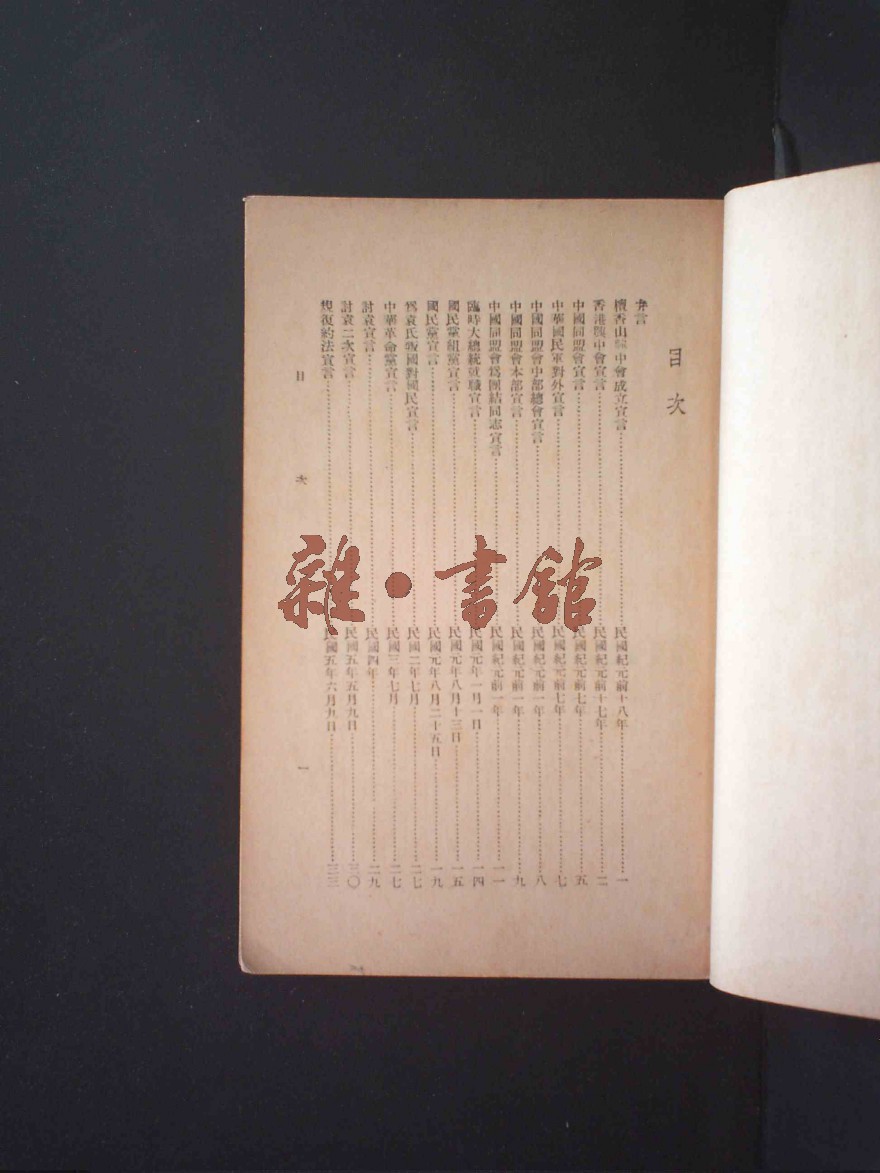 目次
弁言
檀香山興中會成立宣言……民國紀元前十八年……一
香港興中會宣言……民國紀元前十七年……二
中國同盟會宣言……民國紀元前七年……五
中華國民軍對外宣言……民國紀元前七年……七
中國同盟會中部總會宣言……民國紀元前一年……八
中國同盟會本部宣言……民國紀元前一年……九
中國同盟會爲團結同志宣言……民國紀元前一年……一一
臨時大總統就職宣言……民國元年一月一日……一四
國民黨組黨宣言……民國元年八月十三日……一五
國民黨宣言……民國元年八月二十五日……一九
爲袁氏叛國對國民宣言……民國二年七月……二七
中華革命黨宣言……民國三年七月……二七
討袁宣言……民國四年……二九
討袁二次宣言……民國五年五月九日……三〇
規復約法宣言……民國五年六月九日……三三
目次 一
雜·書館